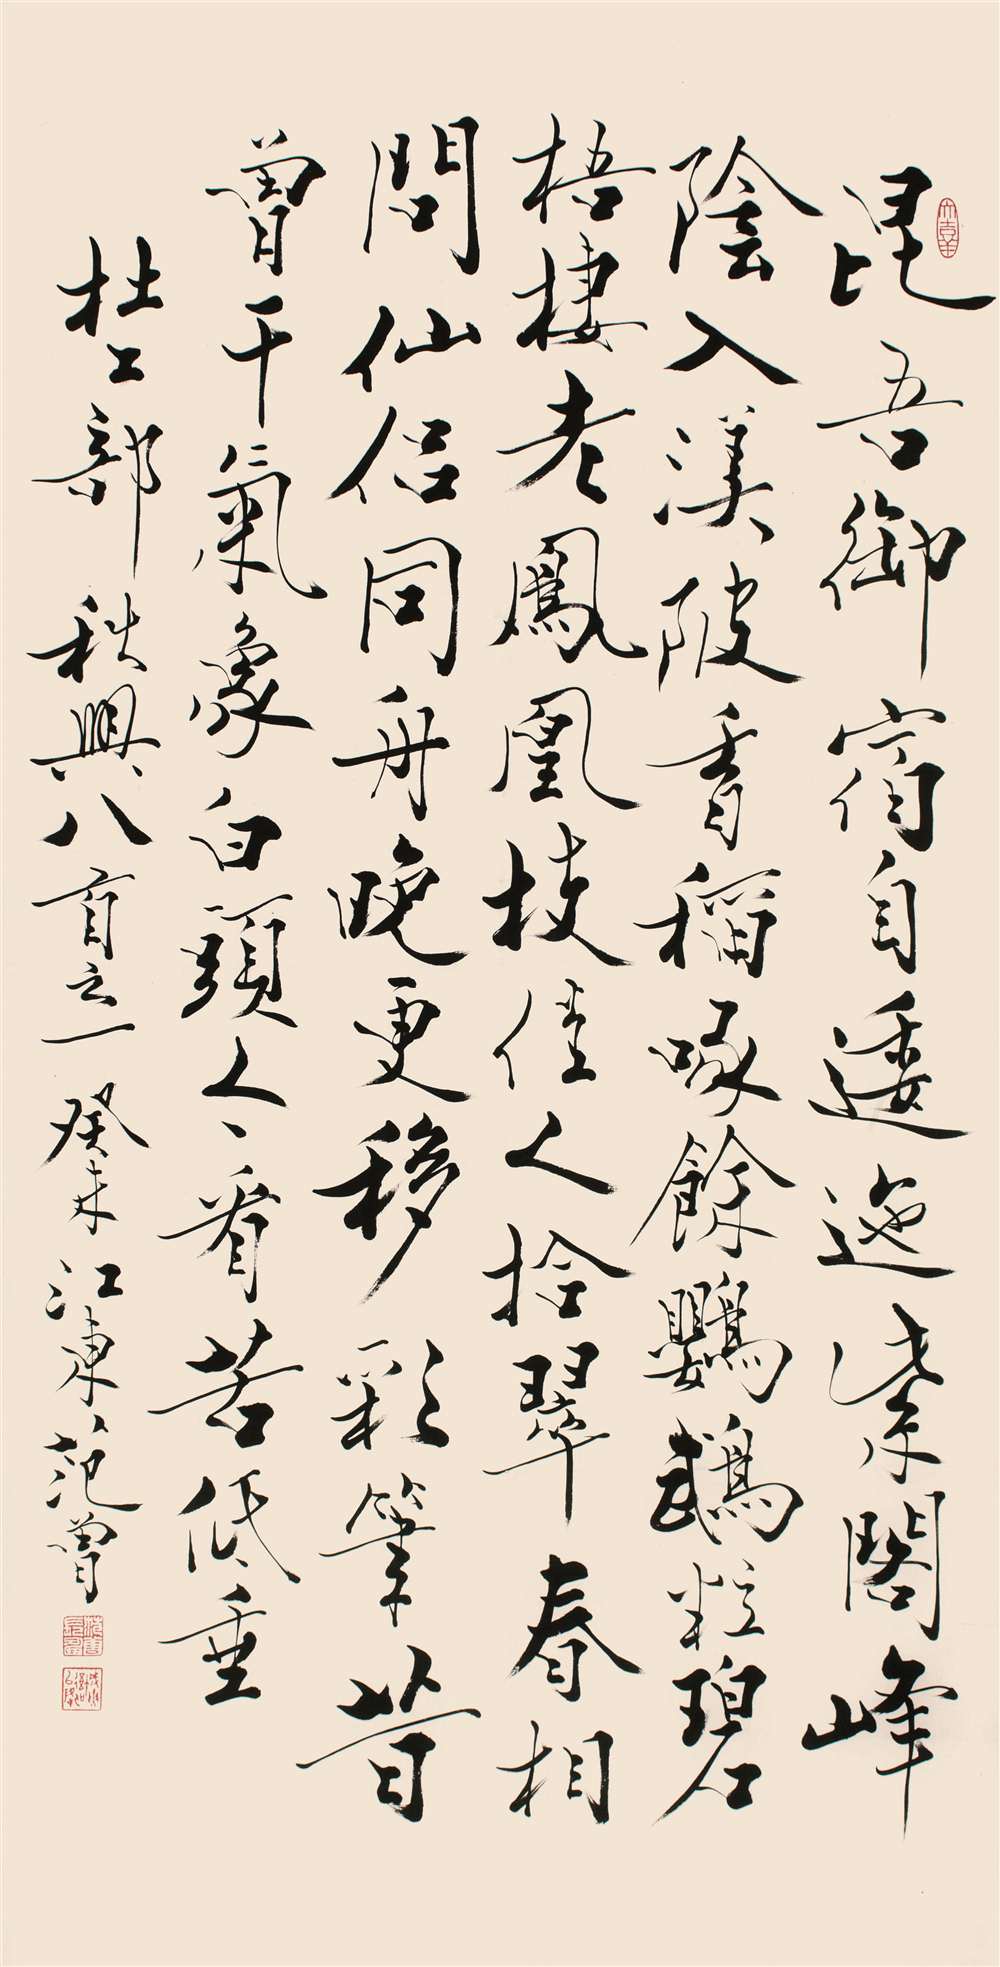 大吉羊
昆吾御宿自逶迤紫閣峰
陰入渼陂香稻啄餘鸚鵡粒碧
梧棲老鳳凰枝佳人拾翠春相
問仙侶同舟晚更移彩筆昔
曾干氣象白頭今看苦低垂
杜工部秋興八首之一癸未江東范曾